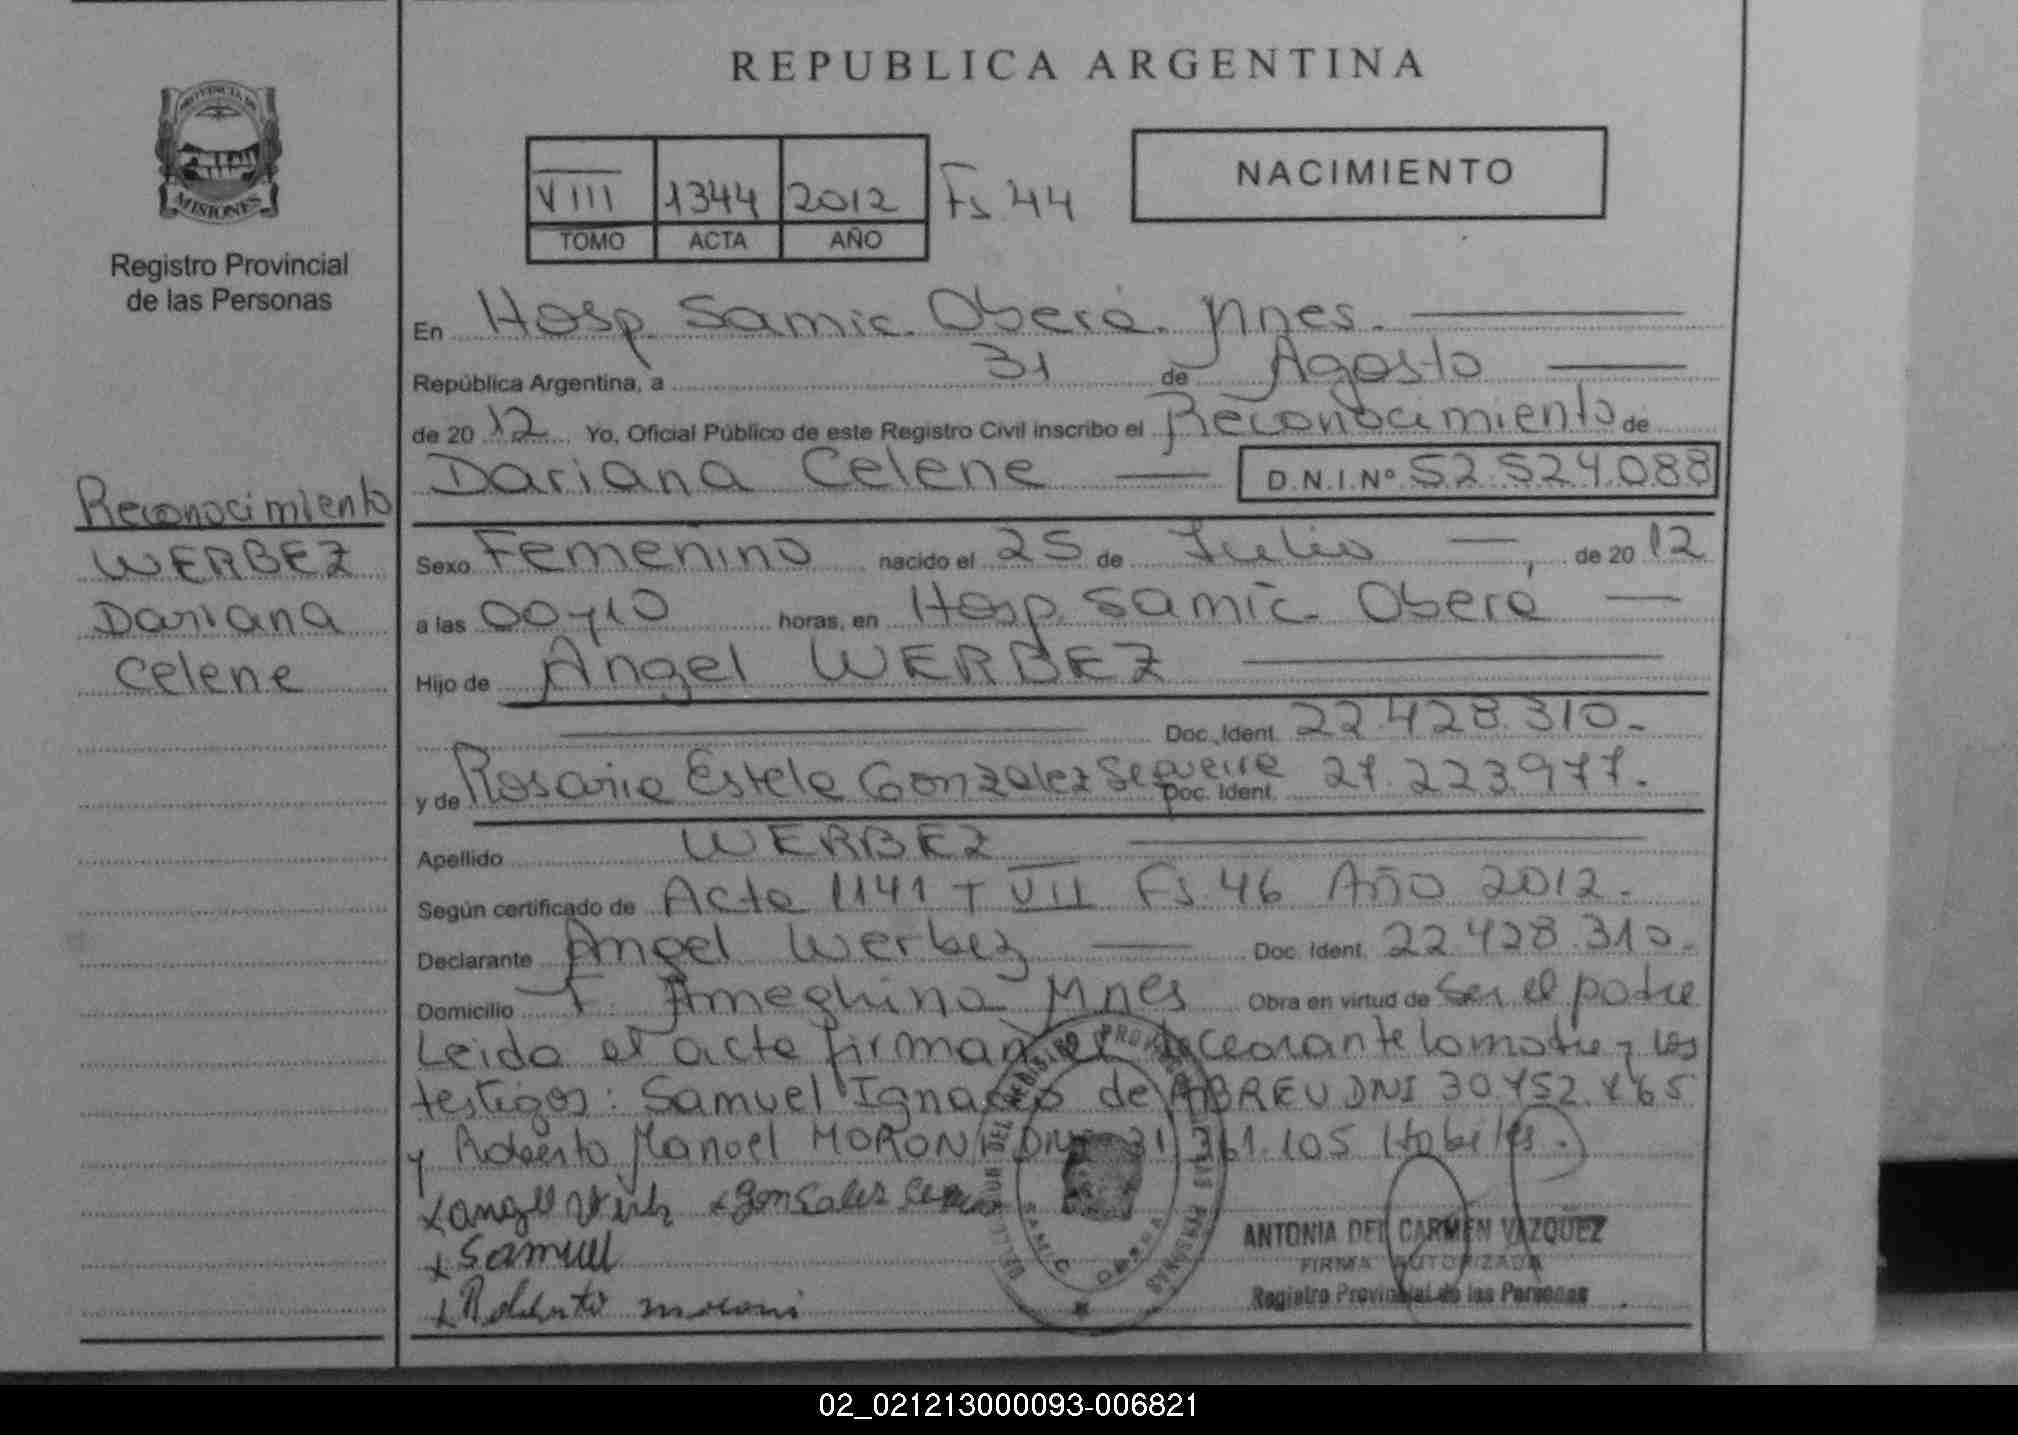 PROVINCIA DE
MISIONES
Registro Provincial
de las Personas
Reconocimiento
WERBEZ
Dariana
Celene
REPUBLICA ARGENTINA
VIII 1344 2012 Fs 44
TOMO ACTA AÑO
NACIMIENTO
En Hosp. Samic. Oberá. Mnes.
República Argentina, a 31 de Agosto
de 2012 Yo, Oficial Público de este Registro Civil inscribo el Reconocimiento de
Dariana Celene D.N.I.Nº 52.524.088
Sexo Femenino nacido el 25 de Julio, de 2012
a las 00y10 horas, en Hosp. Samic. Oberá
Hijo de Angel WERBEZ
Doc. Ident. 22.428.310.
y de Rosaria Estela Gonzalez Sequeira Doc. Ident. 27.223.977.
Apellido WERBEZ
Según certificado de Acta 1141 T VII Fs 46 Año 2012.
Declarante Angel Werbez Doc. Ident. 22.428.310.
Domicilio F. Ameghino Mnes Obra en virtud de Ser el padre
Leida el acta firman el Declarante la madre y los
testigos: Samuel Ignacio de ABREU DNI 30.452.465
y Roberto Manoel MORONI DNI 31.361.105 Habiles.
x angel Werbz x Gonsales
x Samuel
x Roberto moroni
ANTONIA DEL CARMEN VAZQUEZ
FIRMA AUTORIZADA
Registro Provincial de las Personas
SAMIC OBERA
02_021213000093-006821